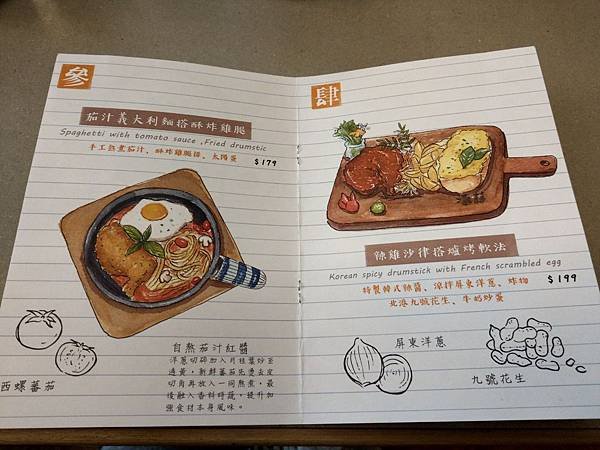 參
茄汁義大利麵搭酥炸雞腿
Spaghetti with tomato sauce ,Fried drumstic
手工熬煮茄汁、酥炸雞腿排、太陽蛋
$179
自熬茄汁紅醬
洋蔥切碎加入月桂葉炒至
過黃，新鮮番茄先燙去皮
切角再放入一同熬煮，最
後融入香料時蔬，提升加
強食材本身風味。
西螺蕃茄
肆
辣雞沙律搭爐烤軟法
Korean spicy drumstick with French scrambled egg
特製韓式辣醬、涼拌屏東洋蔥、炸物
北港九號花生、牛奶炒蛋
$199
屏東洋蔥
九號花生